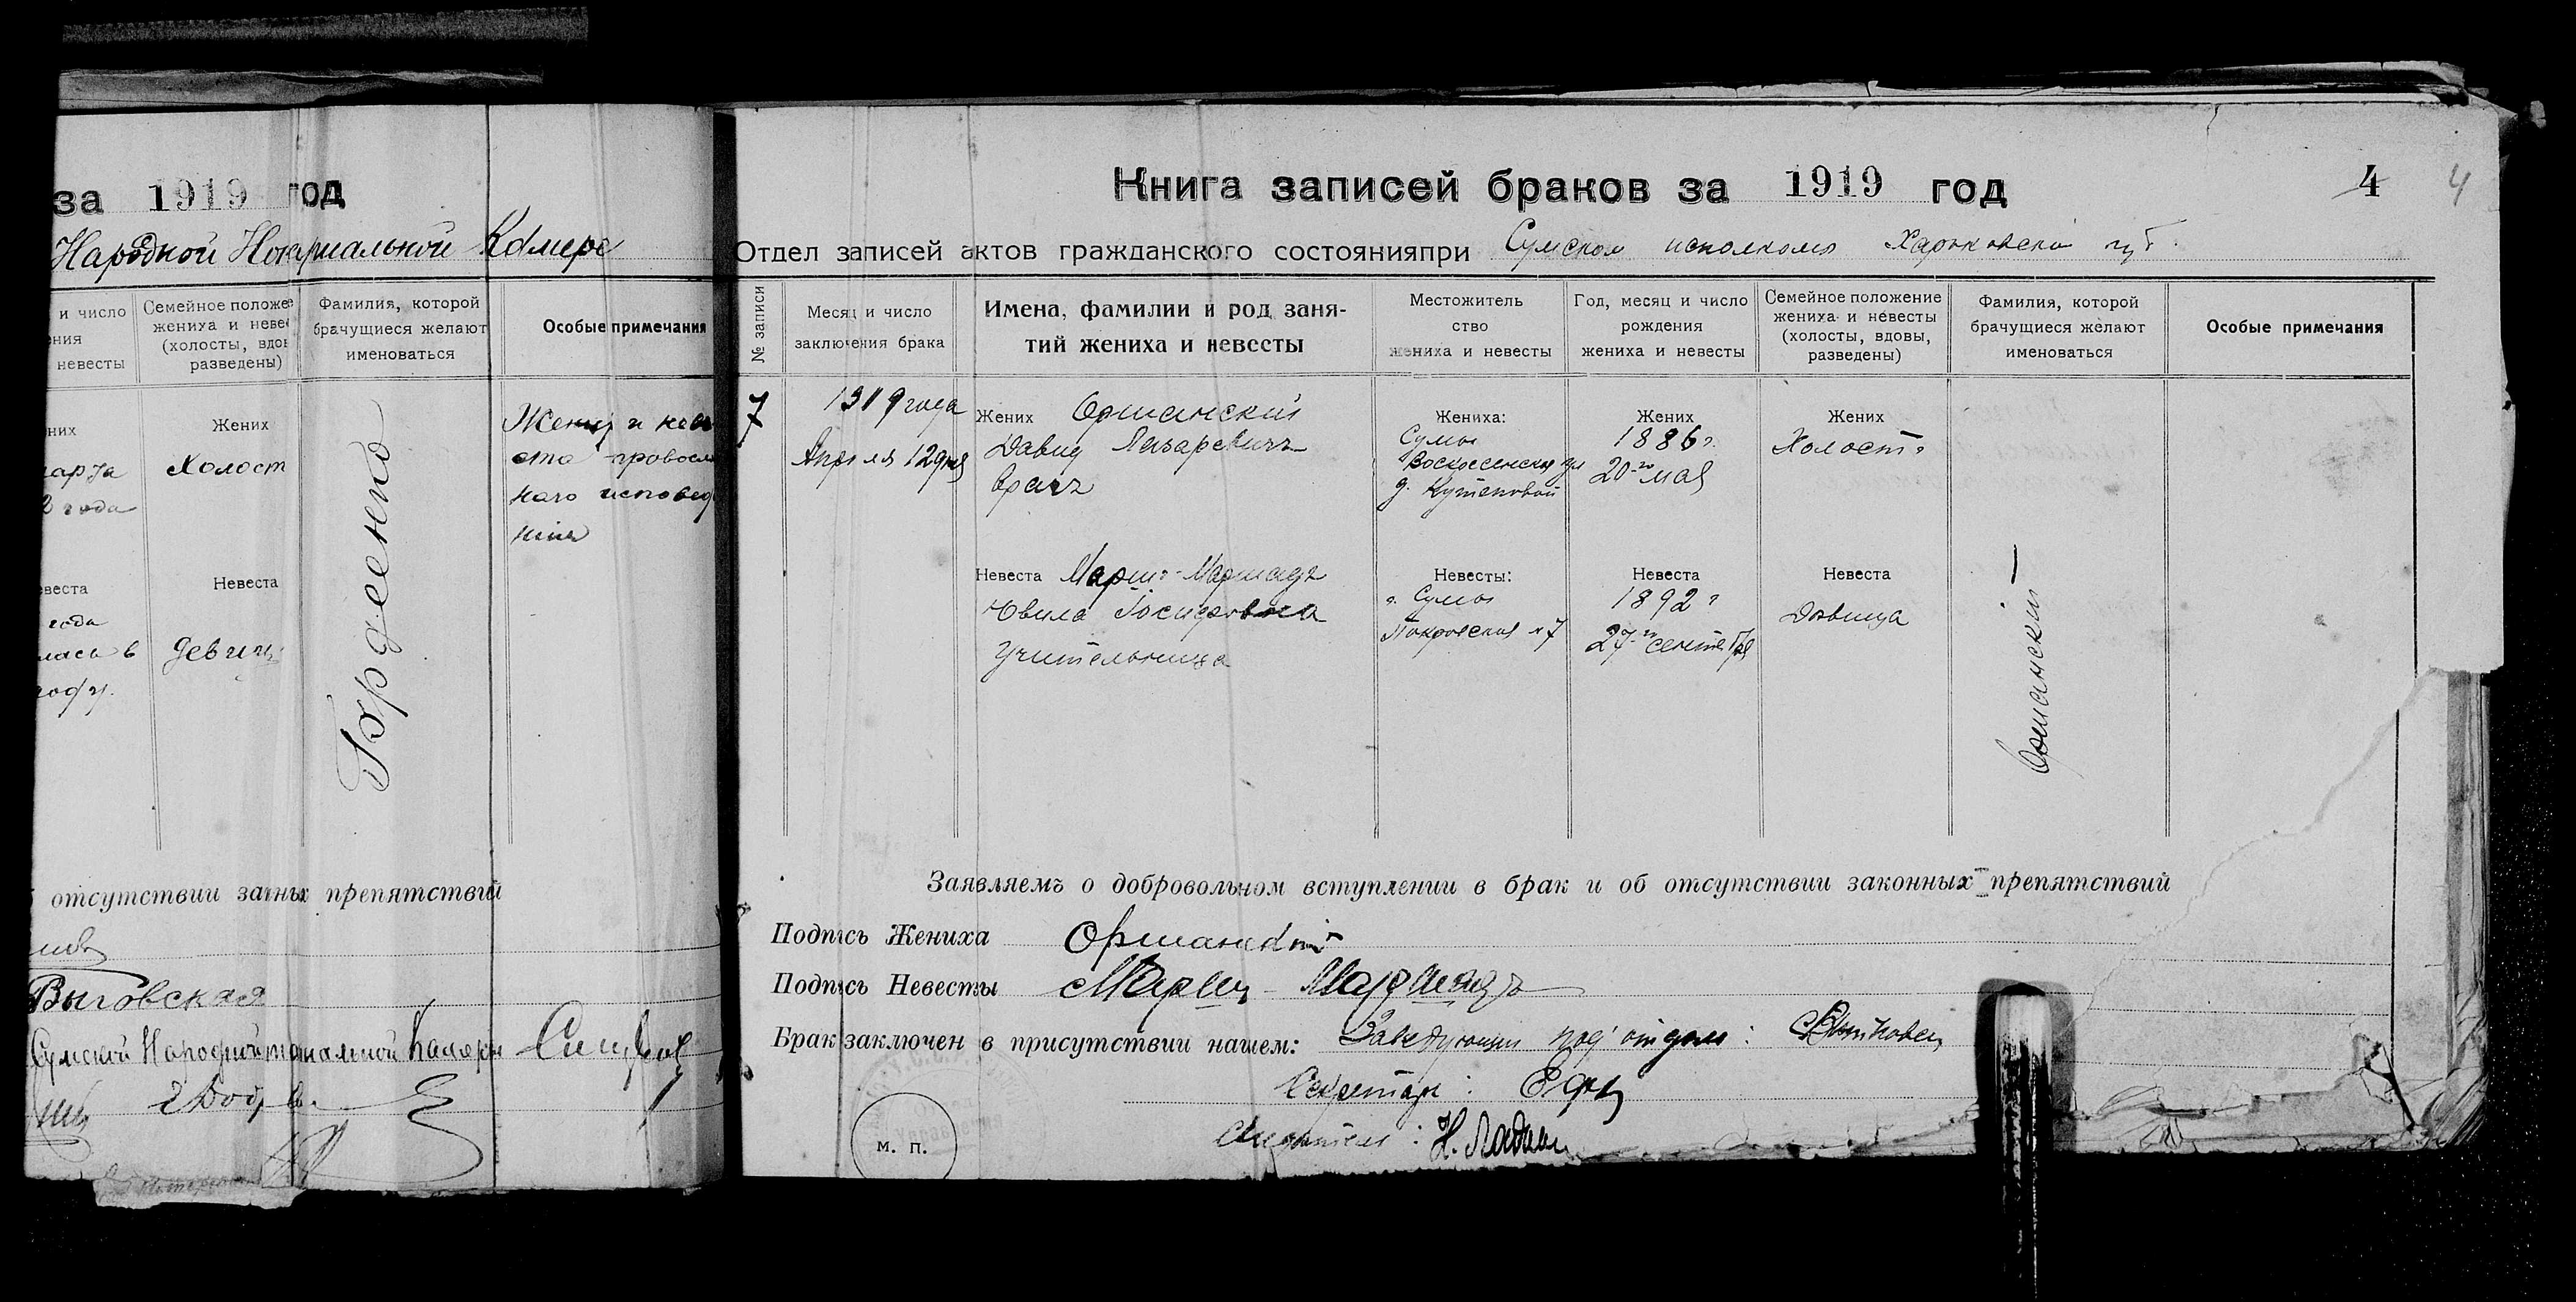 за 1919 год
Народной Нотариальной Камере
и число
невесты
Семейное положе
жениха и невес
(холосты, вдов
разведены)
Фамилия, которой
брачущиеся желают
именоваться
Особые примечания
Жених
Холост
Гордеенко
Жених и неве
ста правосл
наго исповед
ния
года
Невеста
девиц
года
лась в
году
отсутствии законных препятствий
Выговская
Сумской Народной Камеры
Книга записей браков за 1919 год 4 4
Отдел записей актов гражданского состоянияпри Сумском исполкоме Харьковской губ.
№ записи
Месяц и число
заключения брака
Имена, фамилии и род заня-
тий жениха и невесты
Местожитель
ство
жениха и невесты
Год, месяц и число
рождения
жениха и невесты
Семейное положение
жениха и невесты
(холосты, вдовы,
разведены)
Фамилия, которой
брачущиеся желают
именоваться
Особые примечания
7
1919 года
Апреля 12 дня
Жених Оршанский
Давид Лазаревичъ
врачъ
Жениха:
Сумы
Воскресенская ул
д. Кутеповой
Жених
1886 г.
20-го мая
Жених
Холостъ
Невеста
Иосифовна
Учительница
Невесты:
г. Сумы
Покровская № 7
Невеста
1892 г
27-го сентября
Невеста
Дѣвица
Оршанский —
Заявляемъ о добровольном вступлении в брак и об отсутствии законных препятствий
Подпись Жениха Оршанский
Подпись Невесты
Брак заключен в присутствии нашем: Заведующий под'отдел:
Секретарь:
Свидѣтели:
м. п.